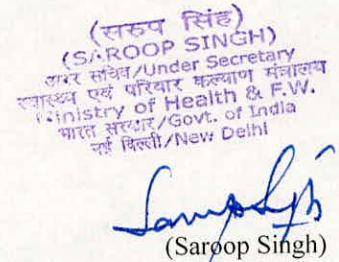 (सरुप सिंह)
(SAROOP SINGH)
अवर सचिव/Under Secretary
स्वास्थ्य एवं परिवार कल्याण मंत्रालय
Ministry of Health & F.W.
भारत सरकार/Govt. of India
नई दिल्ली/New Delhi
(Saroop Singh)